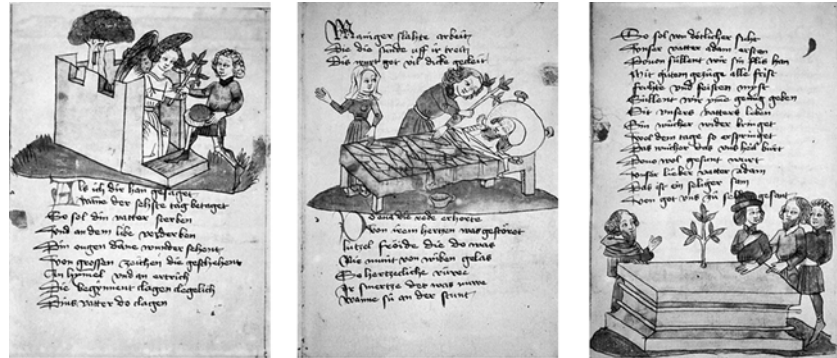 Als ich dir han gesaget
Wane der sehste tag betaget
So sol din vatter sterben
Und an dem libe verderben
Din ougen dane wunder sehent
Von grossen zeichen die geschehent
In hymel und an ertrich
Die begynnent clagen clegelich
Dins vatter do clagen
Maniger slahte arbeit
Die die sunde uff ir treit
Dis wurt get vil dicke gecleit
die rede erhorte
Von irem hertzen was gestöret
lutzel froide die do was
Nie munt von wiben gelas
So hertzecliche ruwe
Ir smertze det was nuwe
Wanne sü an der stunt
So sol von götlicher
Unser vatter adam ersten
Davon süllent wir sin flis han
Mit gutem gezüge alle frist
Füchte und feisten myst
Süllent wir yme genug geben
Sit unsers vatters leben
Sin wücher wider bringet
Wol dem tage so erspringet
Das wücher das uns heil birt
Davon wol gesunt wurt
Unser lieber vatter adam
Das ist ein seliger sam
Von got uns zu gesant